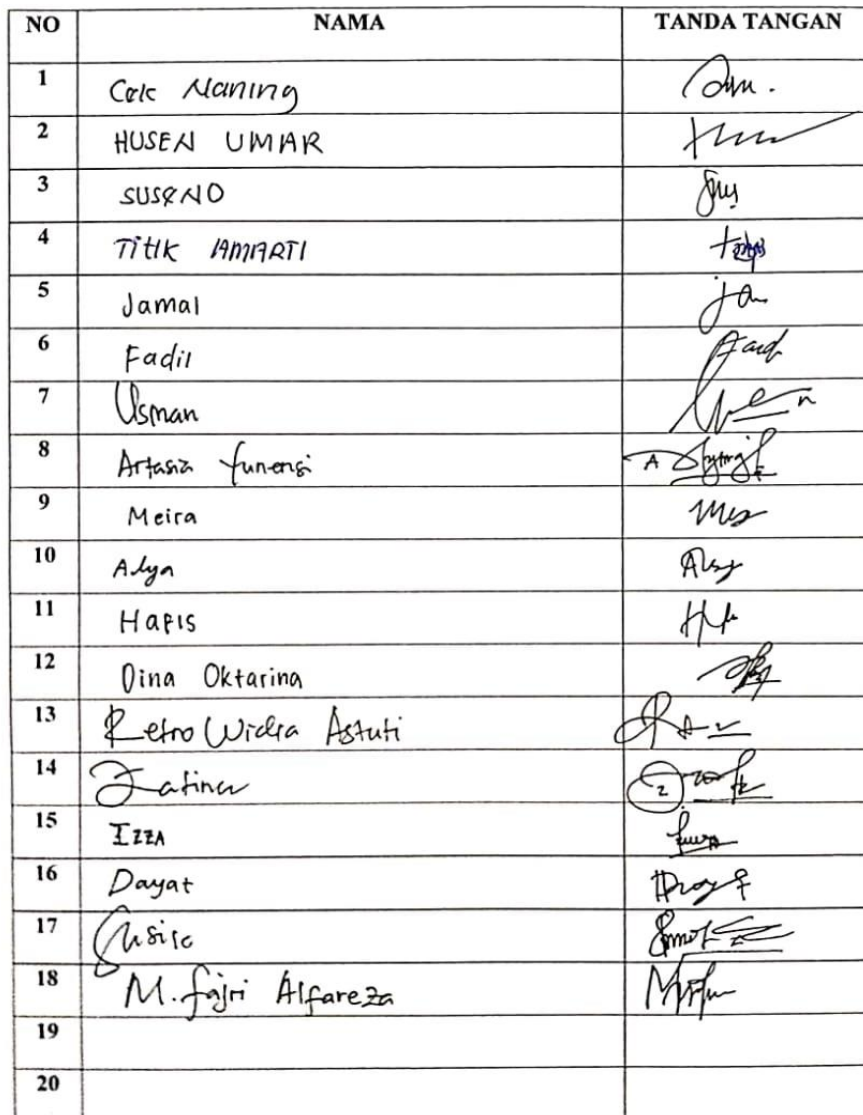 NO NAMA TANDA TANGAN
1 Cek Naning
2 HUSEN UMAR
3 SUSENO
4 TitIK AMARTI
5 Jamal
6 Fadil
7 Usman
8 Artasia Yunensi
9 Meira
10 Alya
11 HAFIS
12 Dina Oktarina
13 Retno Widia Astuti
14 Zatina
15 IZZA
16 Dayat
17
18 M. Fajri Alfareza
19
20